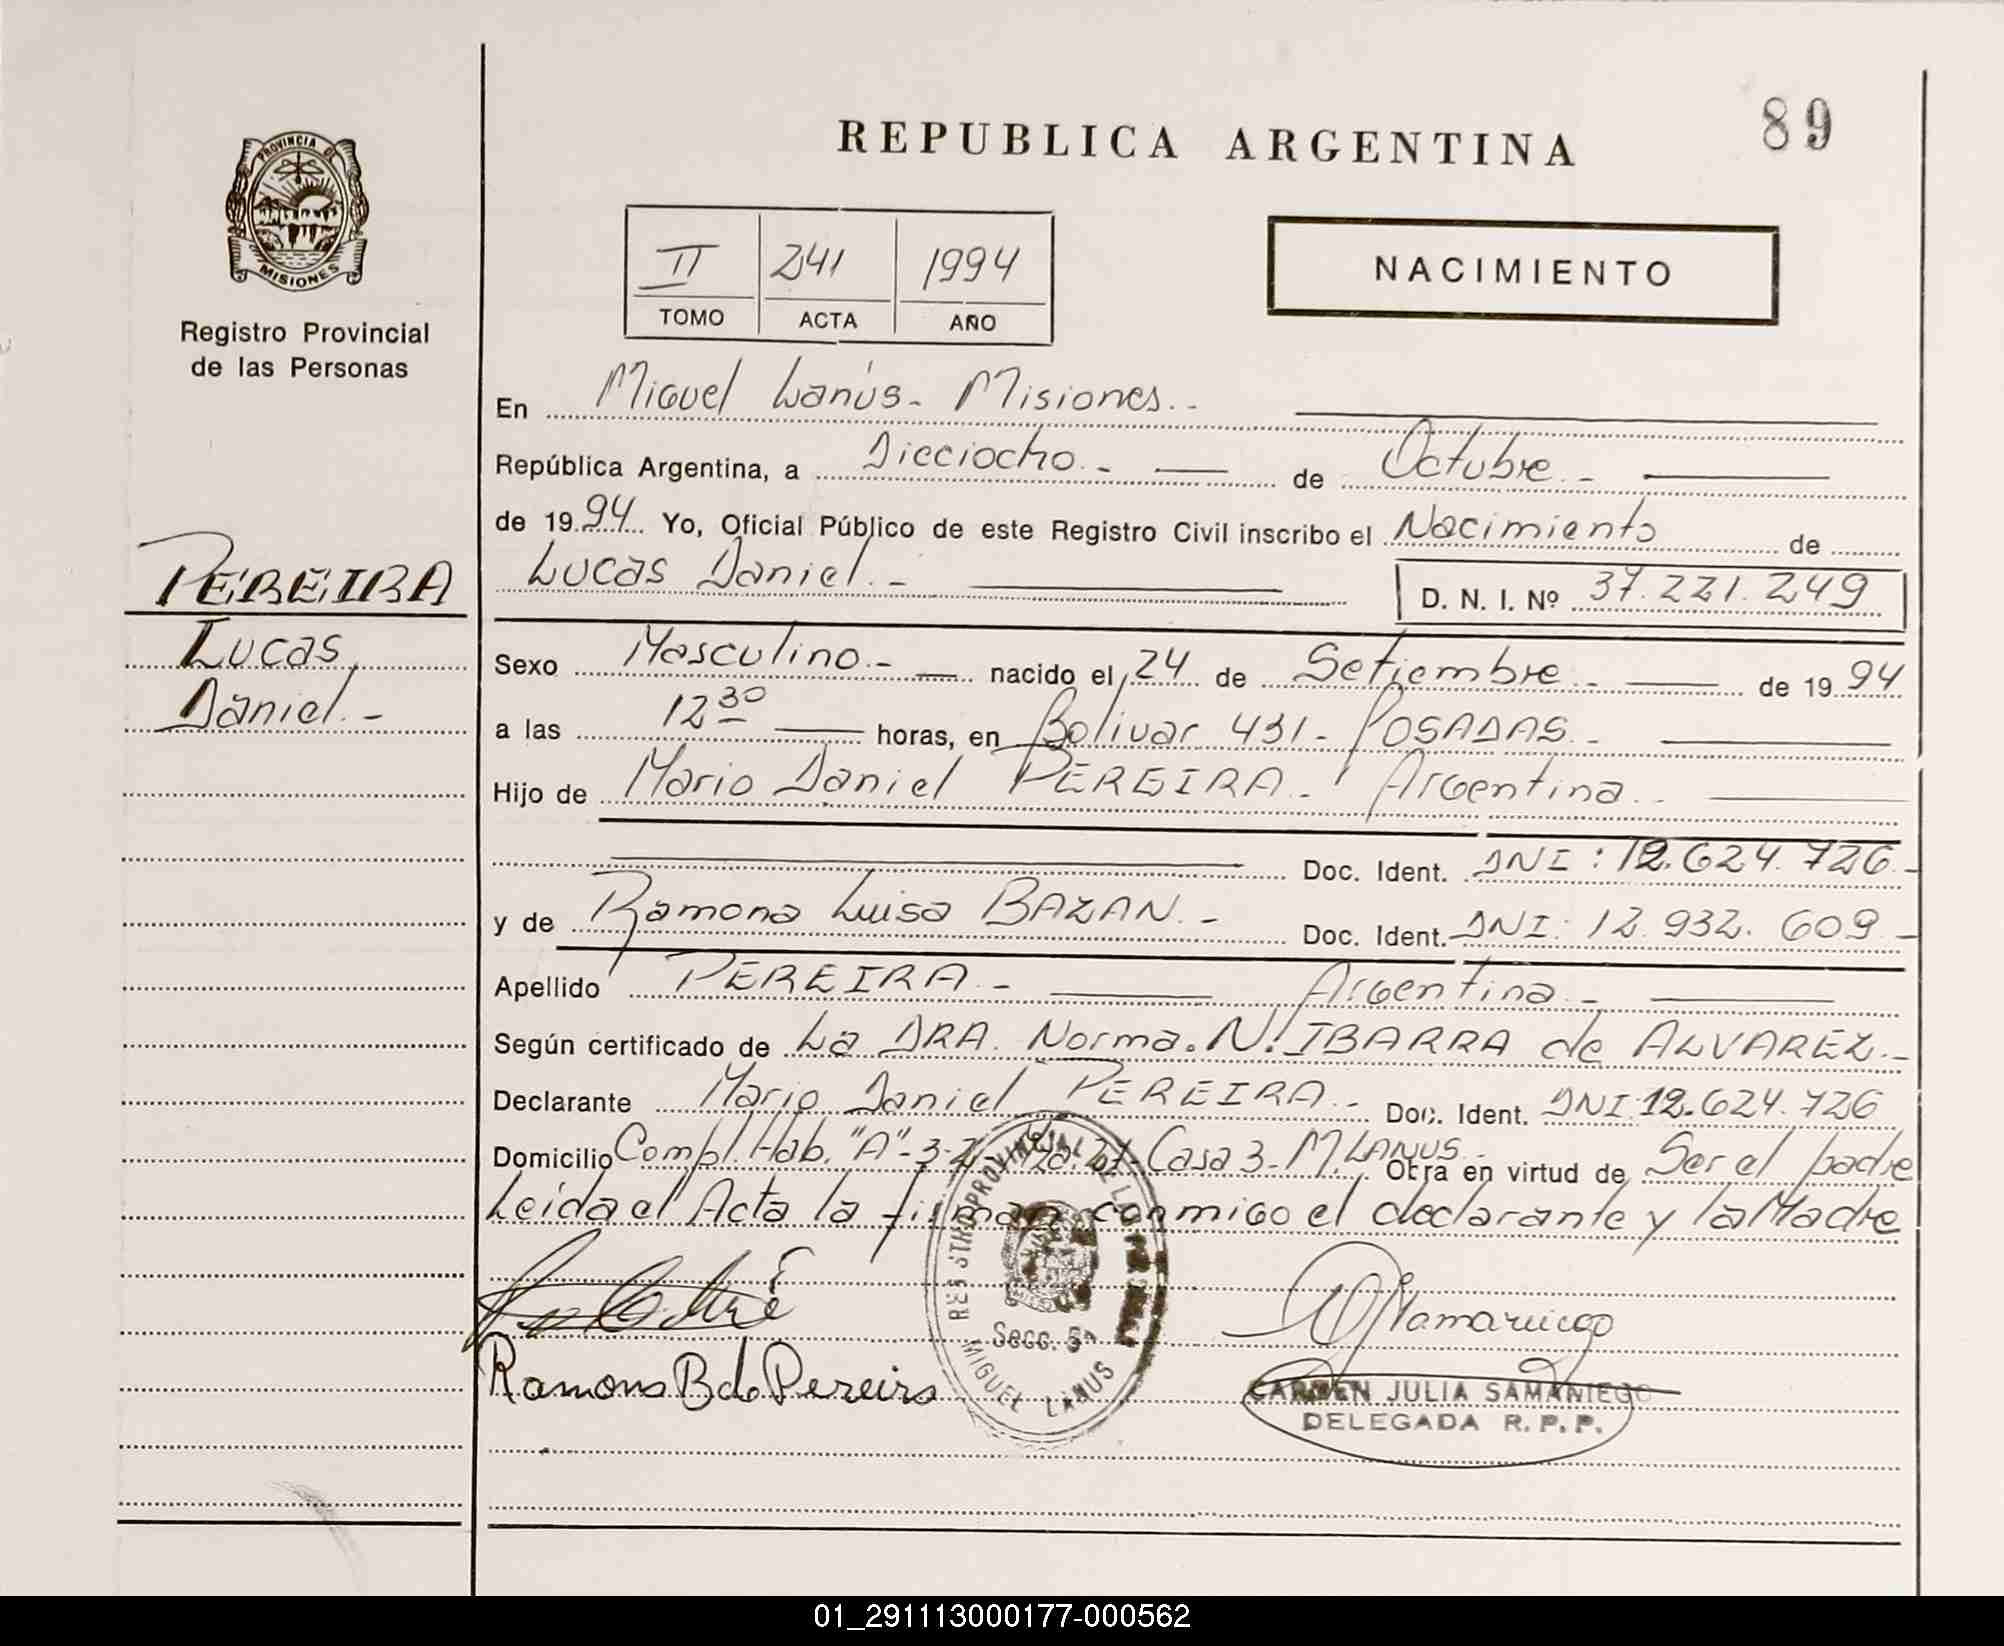 PROVINCIA DE
MISIONES
Registro Provincial
de las Personas
REPUBLICA ARGENTINA
89
II 241 1994
TOMO ACTA AÑO
NACIMIENTO
En Miguel Lanús - Misiones.-
República Argentina, a Dieciocho.- de Octubre.-
de 19 94 Yo, Oficial Público de este Registro Civil inscribo el Nacimiento de
Lucas Daniel.- D. N. I. Nº 37.221.249
PEREIRA
Lucas
Daniel.-
Sexo Masculino.- nacido el 24 de Setiembre.- de 19 94
a las 12 30 horas, en Bolivar 431 - POSADAS.-
Hijo de Mario Daniel PEREIRA.- Argentina.-
Doc. Ident. DNI: 12.624.726.-
y de Ramona Luisa BAZAN.- Doc. Ident. DNI: 12.932.609.-
Apellido PEREIRA.- Argentina.-
Según certificado de La DRA. Norma.N.IBARRA de ALVAREZ.-
Declarante Mario Daniel PEREIRA.- Doc. Ident. DNI:12.624.726
Domicilio Compl. Hab. "A"-3-2- Casa 3 - M. LANUS.- Otra en virtud de Ser el padre
Leida el Acta la firman conmigo el declarante y la Madre
Ramona B de Pereira
REGISTRO PROVINCIAL DE LAS
Secc. 5ª
MIGUEL LANUS
CARMEN JULIA SAMANIEGO
DELEGADA R. P. P.
01_291113000177-000562